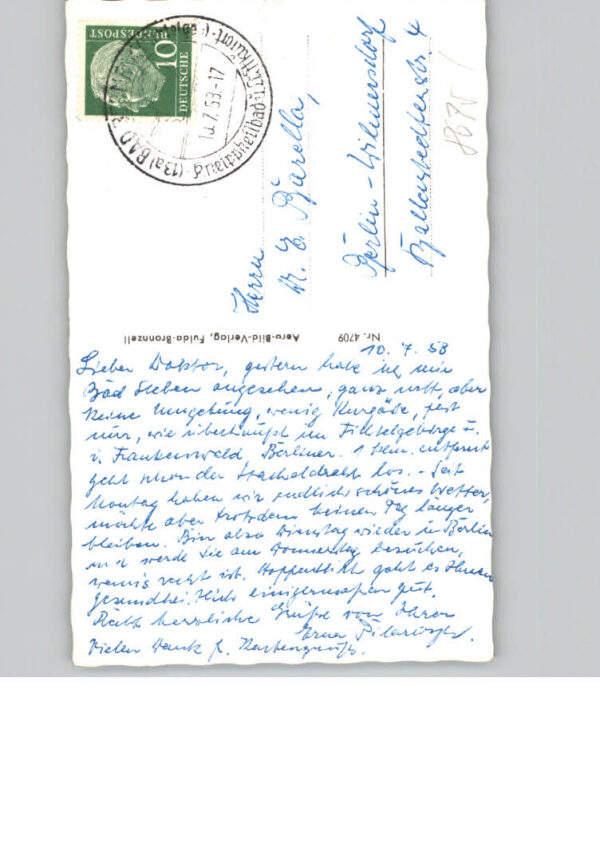 DEUTSCHE
BUNDESPOST
10
(13a) BAD
Kneippheilbad u. Luftkurort
10.7.58-17
8675
Herrn
Dr. E. Barella,
Berlin-Wilmersdorf
Ballenstedterstr. 4
Aero-Bild-Verlag, Fulda-Bronnzell
Nr. 4709
10. 7. 58
Lieber Doktor, gestern habe ich mir
Bad Steben angesehen, ganz nett, aber
keine Umgebung, wenig Kurgäste, fast
nur, wie überhaupt im Fichtelgebirge u.
i. Frankenwald Berliner. 1 Klm. entfernt
geht schon der Stacheldraht los. - Seit
Montag haben wir endlich schönes Wetter,
möchte aber trotzdem keinen Tag länger
bleiben. Bin also Dienstag wieder in Berlin
und werde Sie am Donnerstag besuchen,
wenn's recht ist. Hoffentlich geht es Ihnen
gesundheitlich einigermaßen gut.
Recht herzliche Grüße von Ihrer
Erna
Vielen Dank f. Kartengruß.